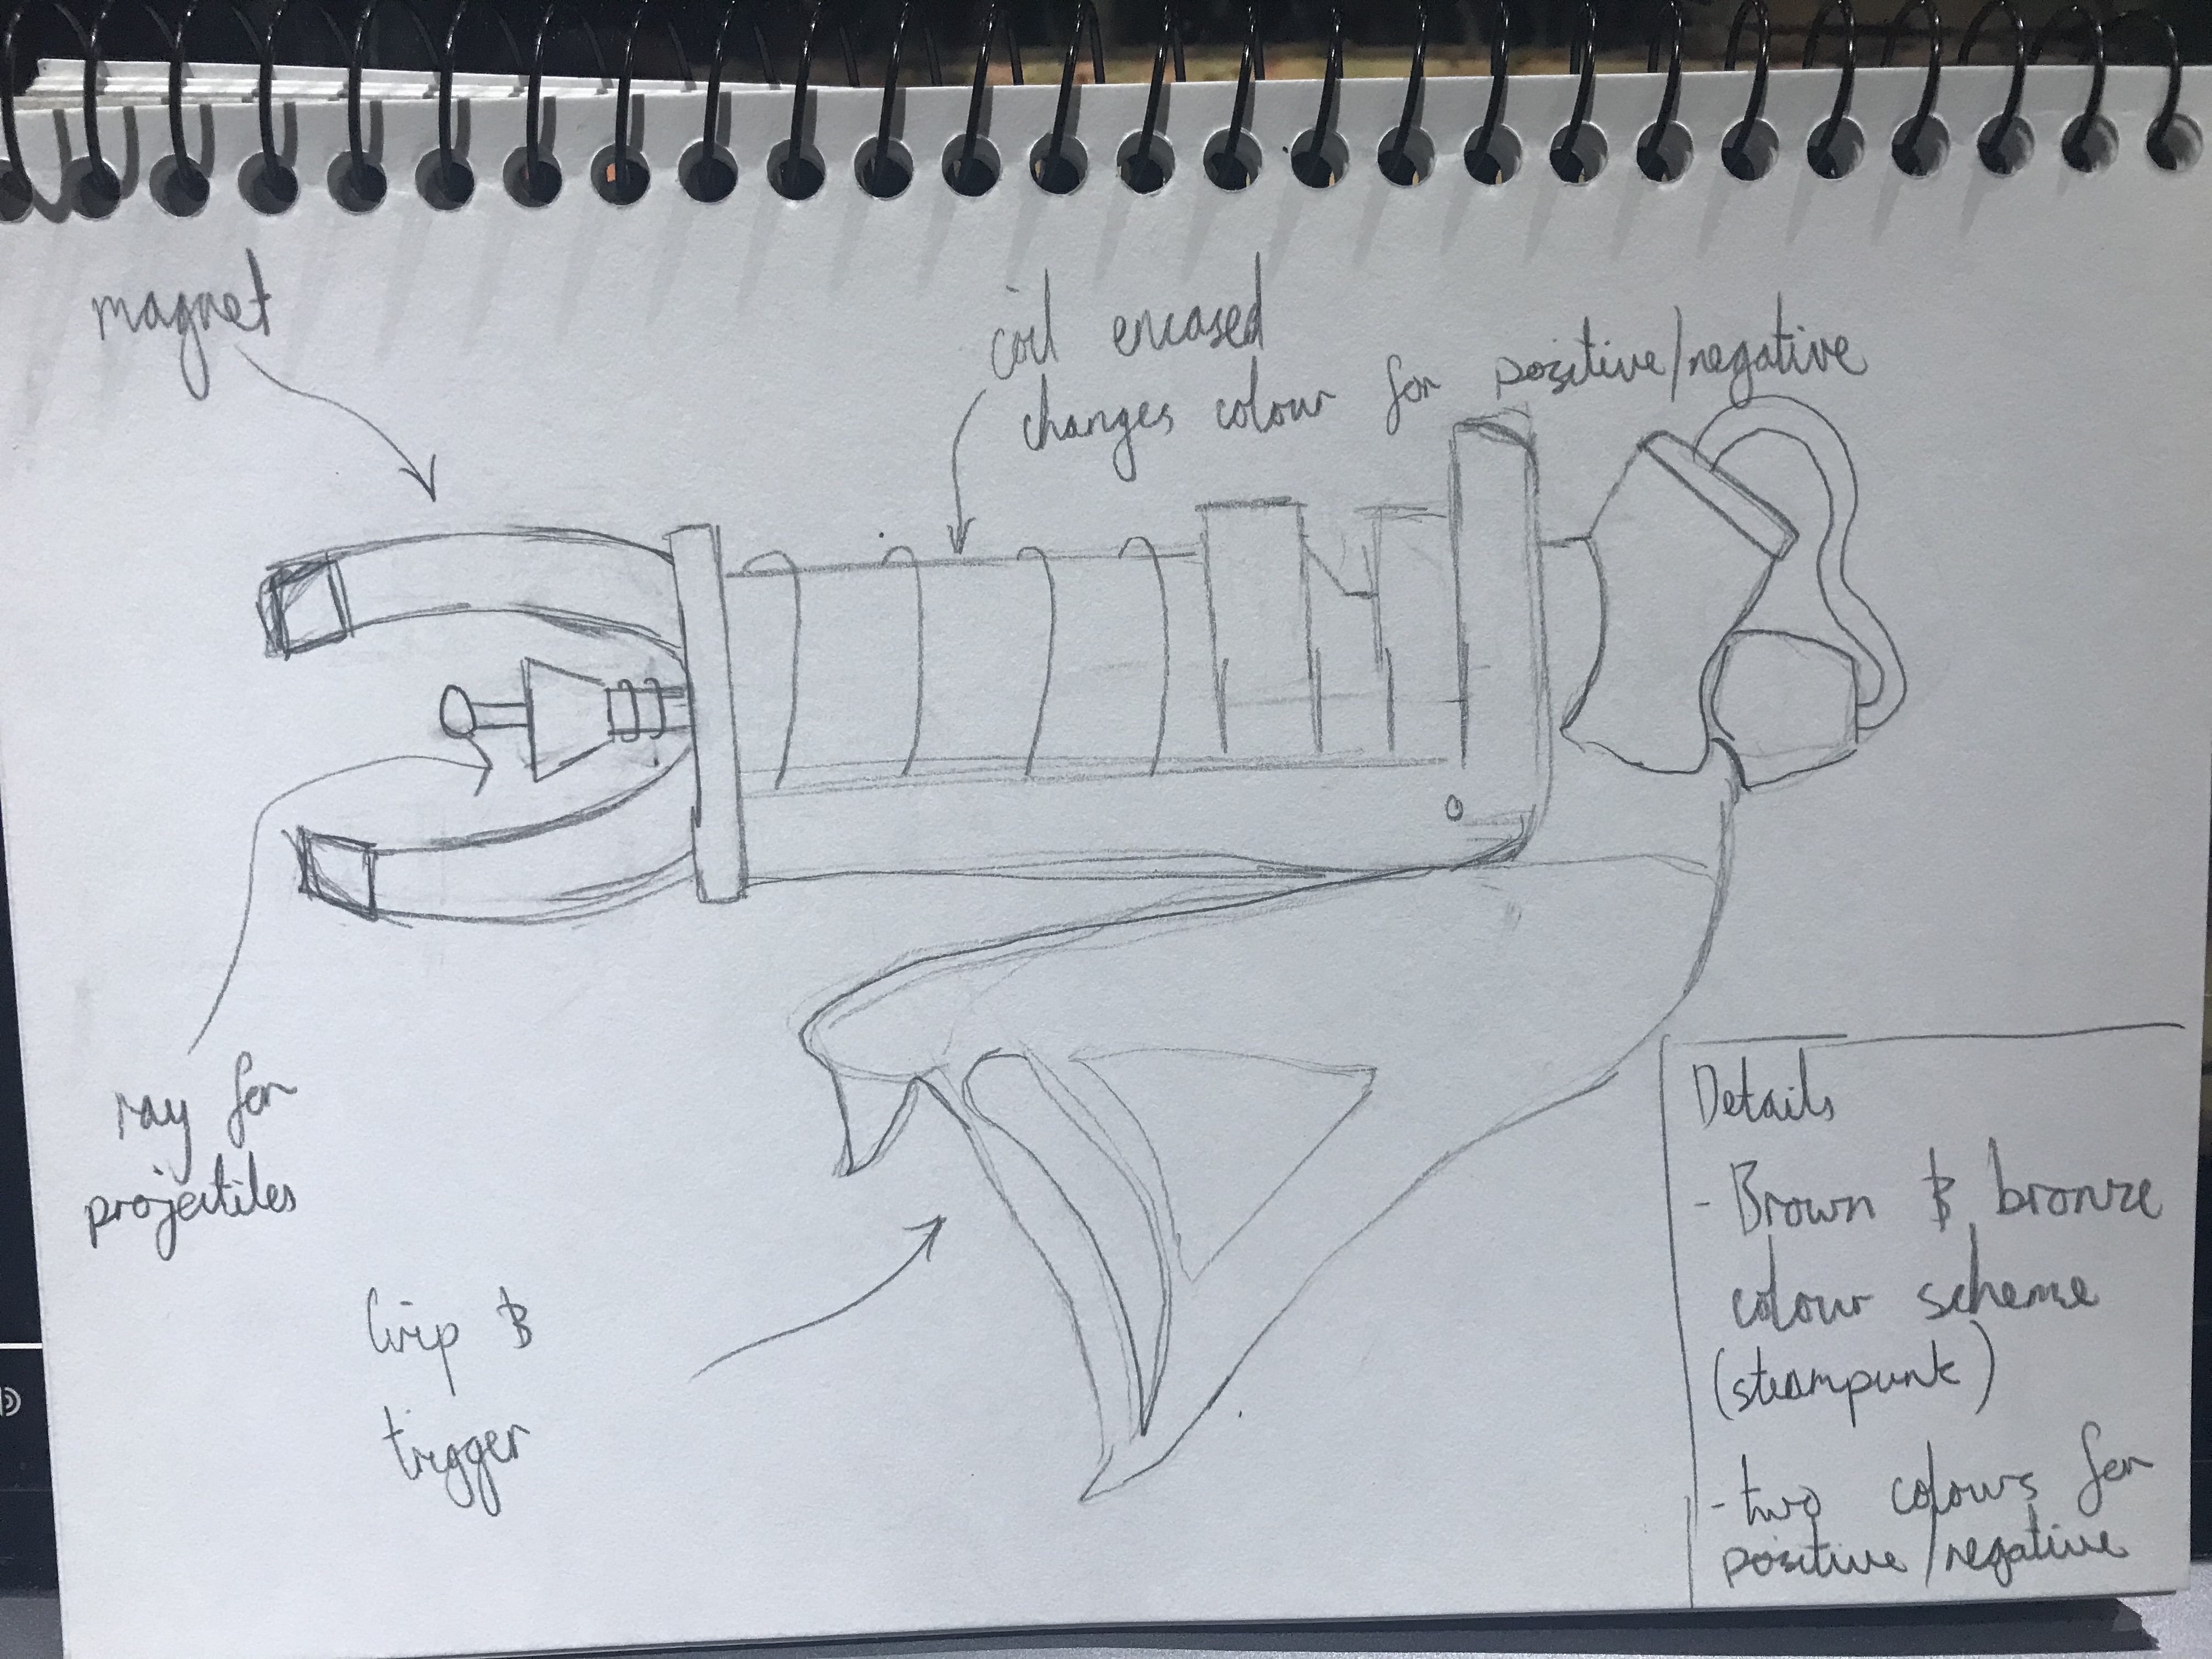 magnet
coil encased
changes colour for positive/negative
ray for
projectiles
Grip &
trigger
Details
- Brown & bronze
colour scheme
(steampunk)
- two colours for
positive/negative